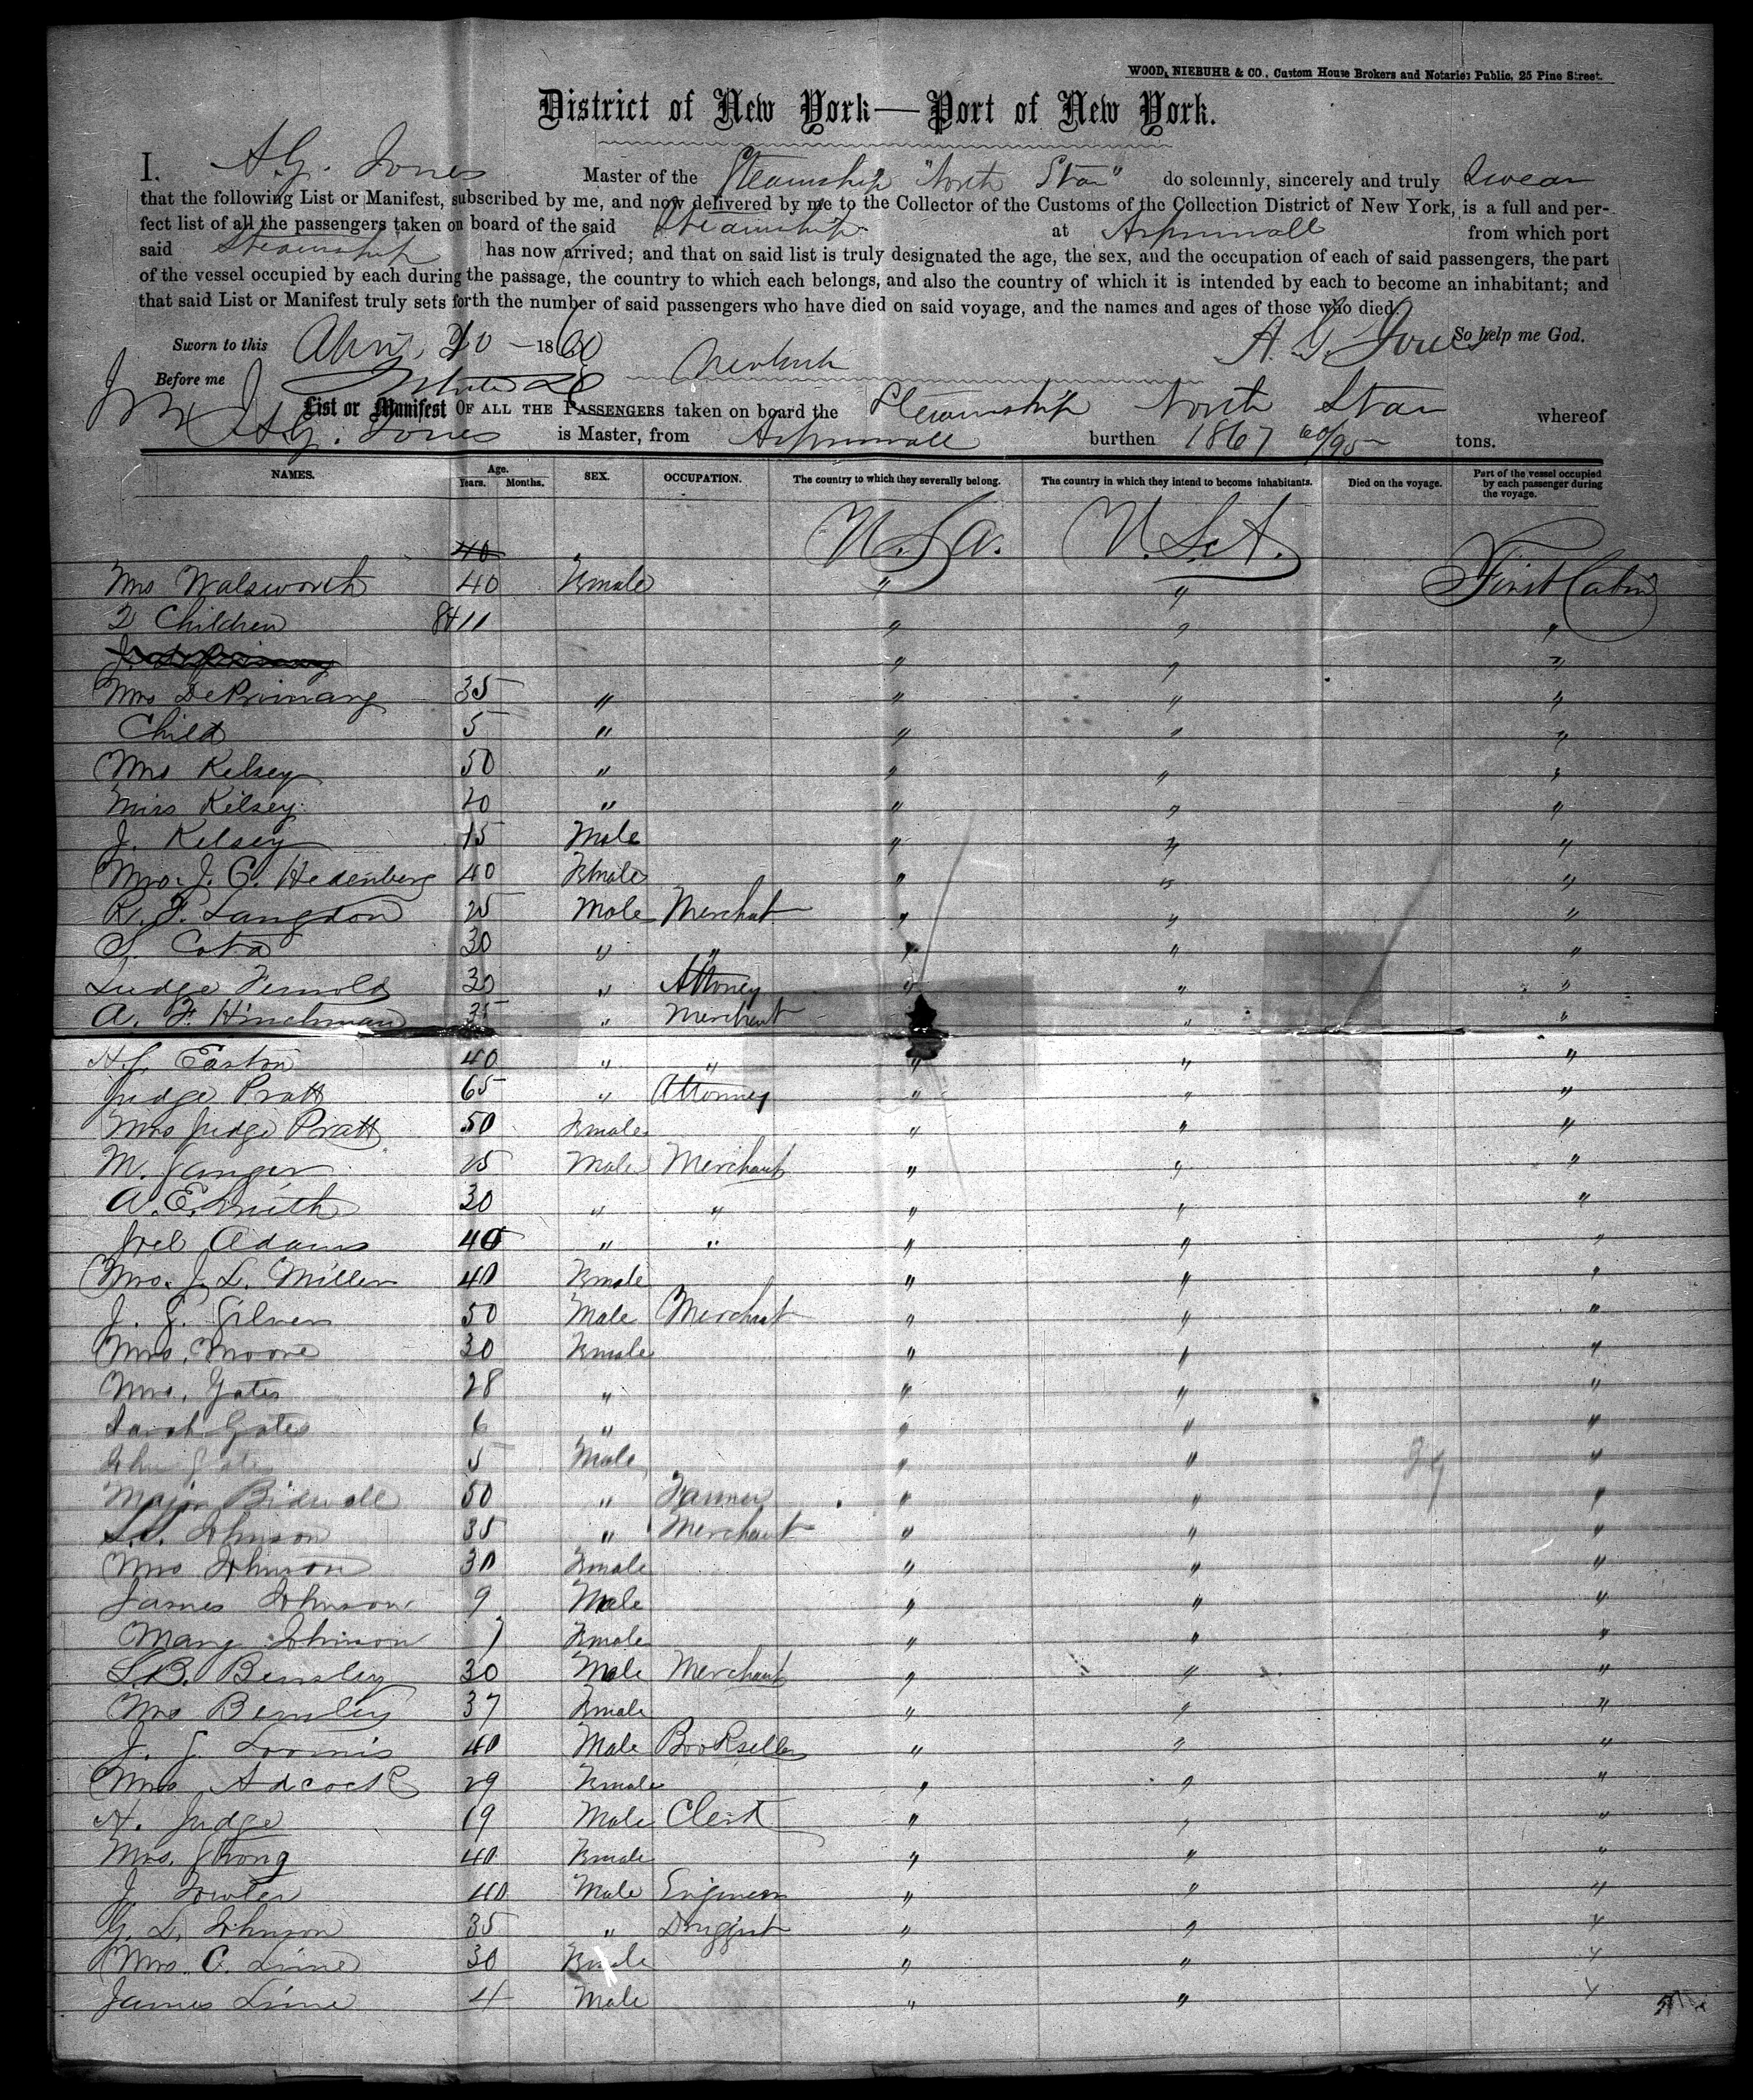 WOOD, NIEBUHR & CO., Custom House Brokers and Notaries Public, 25 Pine Street.
District of New York—Port of New York.
I. A.G. Jones Master of the Steamship "North Star" do solemnly, sincerely and truly Swear
that the following List or Manifest, subscribed by me, and now delivered by me to the Collector of the Customs of the Collection District of New York, is a full and per-
fect list of all the passengers taken on board of the said Steamship at Aspinwall from which port
said Steamship has now arrived; and that on said list is truly designated the age, the sex, and the occupation of each of said passengers, the part
of the vessel occupied by each during the passage, the country to which each belongs, and also the country of which it is intended by each to become an inhabitant; and
that said List or Manifest truly sets forth the number of said passengers who have died on said voyage, and the names and ages of those who died.
So help me God.
Sworn to this April 20 - 1860 A. G. Jones
Before me
List or Manifest OF ALL THE PASSENGERS taken on board the Steamship North Star whereof
A.G. Jones is Master, from Aspinwall burthen 1867 60/95 tons.
NAMES. Age. Years. Months. SEX. OCCUPATION. The country to which they severally belong. The country in which they intend to become inhabitants. Died on the voyage. Part of the vessel occupied by each passenger during the voyage.
40 U.S.A. U.S.A.
Mrs Walsworth 40 Female " " First Cabin
2 Children 8 4 11 " " "
" " "
Mrs DePrimang 35 " " " "
Child 5 " " " "
Mrs Kelsey 50 " " " "
Miss Kelsey 20 " " " "
J. Kelsey 15 Male " " "
Mrs. J. C. Hedenberg 40 Female " " "
R. F. Langdon 25 Male Merchant " " "
S. Cota 30 " " " " "
Judge Fernold 30 " Attorney " " "
A. F. Hinchman 35 " Merchant " " "
H.J. Easton 40 " " " " "
Judge Pratt 65 " Attorney " " "
Mrs Judge Pratt 50 Female " " "
M. Sanger 25 Male Merchant " " "
A. E. Smith 30 " " " " "
Joel Adams 40 " " " " "
Mrs. J. L. Miller 40 Female " " "
J. S. Silver 50 Male Merchant " " "
Mrs. Moore 30 Female " " "
Mrs. Gates 28 " " " "
Sarah Gates 6 " " " "
John Gates 5 Male " " "
Major Bidwell 50 " Farmer " " "
S.S. Johnson 35 " Merchant " " "
Mrs Johnson 30 Female " " "
James Johnson 9 Male " " "
Mary Johnson 7 Female " " "
S.B. Bensley 30 Male Merchant " " "
Mrs Bensley 37 Female " " "
J. G. Loomis 40 Male Bookseller " " "
Mrs Adcock 29 Female " " "
H. Judge 19 Male Clerk " " "
Mrs. Strong 40 Female " " "
J. Fowler 40 Male Engineer " " "
G. L. Johnson 35 " Druggist " " "
Mrs. C. Lime 30 Female " " "
James Lime 4 Male " " "